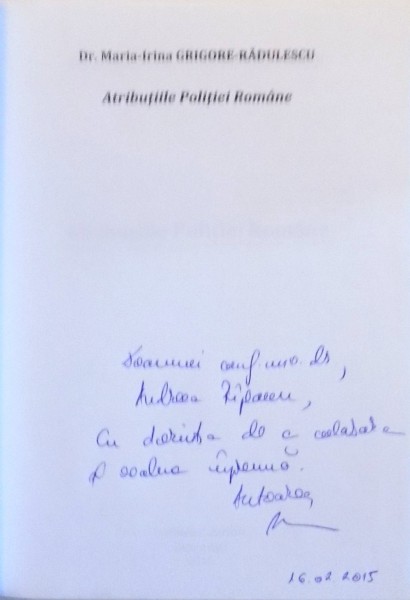 Dr. Maria-Irina GRIGORE-RĂDULESCU
Atribuțiile Poliției Române
Doamnei conf. univ. dr,
Andreea
Cu dorința de a colabora
împreună.
Autoarea
16.02.2015